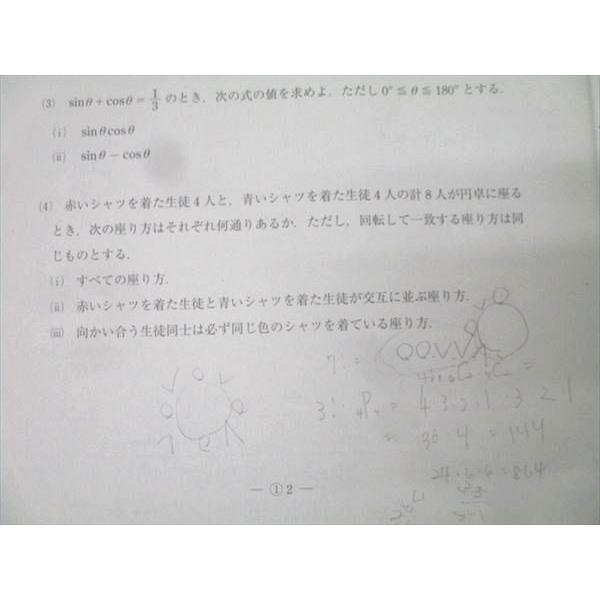 (3) sinθ+cosθ=1/3 のとき，次の式の値を求めよ．ただし 0°≦θ≦180° とする．
(i) sinθcosθ
(ii) sinθ－cosθ
(4) 赤いシャツを着た生徒4人と，青いシャツを着た生徒4人の計8人が円卓に座る
とき，次の座り方はそれぞれ何通りあるか．ただし，回転して一致する座り方は同
じものとする．
(i) すべての座り方．
(ii) 赤いシャツを着た生徒と青いシャツを着た生徒が交互に並ぶ座り方．
(iii) 向かい合う生徒同士は必ず同じ色のシャツを着ている座り方．
7! =
3! ₄P₄ = 4·3·2·1·3·2·1
= 36·4 = 144
24·6·6=864
— ①2 —